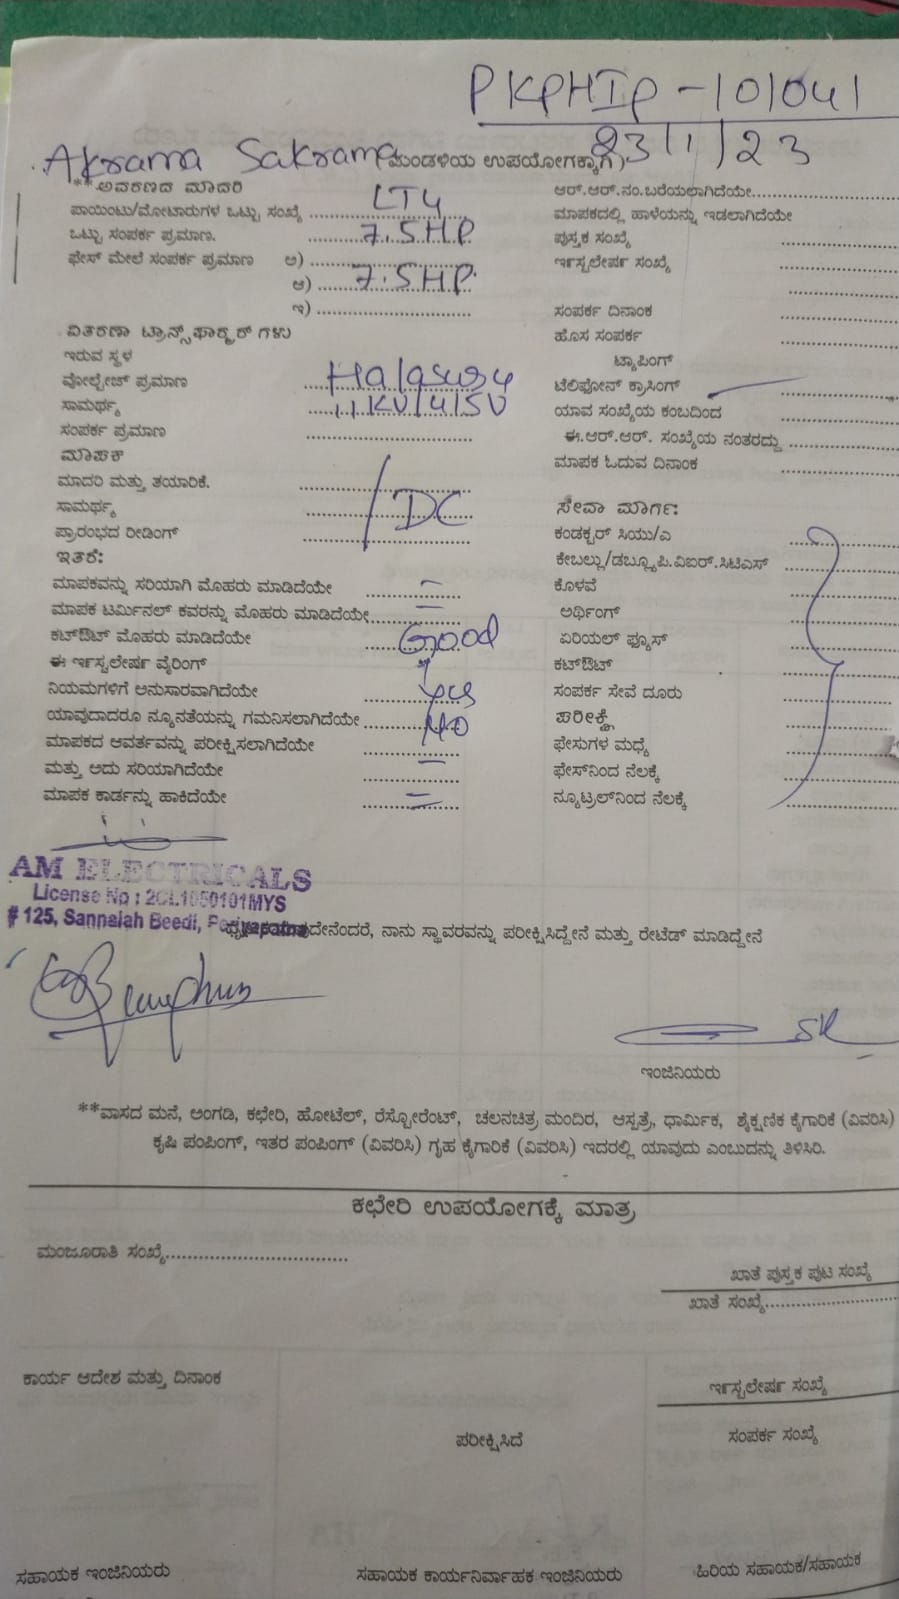 PKPHIP-101041
23/1/23
Akrama Sakrama (ಮಂಡಳಿಯ ಉಪಯೋಗಕ್ಕಾಗಿ)
**ಅವರಣದ ಮಾದರಿ
ಪಾಯಿಂಟು/ಮೋಟಾರುಗಳ ಒಟ್ಟು ಸಂಖ್ಯೆ LT4
ಒಟ್ಟು ಸಂಪರ್ಕ ಪ್ರಮಾಣ. 7.5HP
ಫೇಸ್ ಮೇಲೆ ಸಂಪರ್ಕ ಪ್ರಮಾಣ ಅ)
ಆ) 7.5HP
ಇ)
ವಿತರಣಾ ಟ್ರಾನ್ಸ್‌ಫಾರ್ಮರ್ ಗಳು
ಇರುವ ಸ್ಥಳ
ವೋಲ್ಟೇಜ್ ಪ್ರಮಾಣ Halasuru
ಸಾಮರ್ಥ್ಯ 11KV/415V
ಸಂಪರ್ಕ ಪ್ರಮಾಣ
ಮಾಪಕ
ಮಾದರಿ ಮತ್ತು ತಯಾರಿಕೆ.
ಸಾಮರ್ಥ್ಯ DC
ಪ್ರಾರಂಭದ ರೀಡಿಂಗ್
ಇತರೆ:
ಮಾಪಕವನ್ನು ಸರಿಯಾಗಿ ಮೊಹರು ಮಾಡಿದೆಯೇ
ಮಾಪಕ ಟರ್ಮಿನಲ್ ಕವರನ್ನು ಮೊಹರು ಮಾಡಿದೆಯೇ
ಕಟ್‌ಔಟ್ ಮೊಹರು ಮಾಡಿದೆಯೇ Good
ಈ ಇನ್ಸ್ಟಲೇಷನ್ ವೈರಿಂಗ್
ನಿಯಮಗಳಿಗೆ ಅನುಸಾರವಾಗಿದೆಯೇ yes
ಯಾವುದಾದರೂ ನ್ಯೂನತೆಯನ್ನು ಗಮನಿಸಲಾಗಿದೆಯೇ NO
ಮಾಪಕದ ಆವರ್ತವನ್ನು ಪರೀಕ್ಷಿಸಲಾಗಿದೆಯೇ
ಮತ್ತು ಅದು ಸರಿಯಾಗಿದೆಯೇ
ಮಾಪಕ ಕಾರ್ಡನ್ನು ಹಾಕಿದೆಯೇ
ಆರ್.ಆರ್.ನಂ.ಬರೆಯಲಾಗಿದೆಯೇ
ಮಾಪಕದಲ್ಲಿ ಹಾಳೆಯನ್ನು ಇಡಲಾಗಿದೆಯೇ
ಪುಸ್ತಕ ಸಂಖ್ಯೆ
ಇನ್ಸ್ಟಲೇಷನ್ ಸಂಖ್ಯೆ
ಸಂಪರ್ಕ ದಿನಾಂಕ
ಹೊಸ ಸಂಪರ್ಕ
ಟ್ಯಾಪಿಂಗ್
ಟೆಲಿಫೋನ್ ಕ್ರಾಸಿಂಗ್
ಯಾವ ಸಂಖ್ಯೆಯ ಕಂಬದಿಂದ
ಈ.ಆರ್.ಆರ್. ಸಂಖ್ಯೆಯ ನಂತರದ್ದು
ಮಾಪಕ ಓದುವ ದಿನಾಂಕ
ಸೇವಾ ಮಾರ್ಗ:
ಕಂಡಕ್ಟರ್ ಸಿಯು/ಎ
ಕೇಬಲ್ಲು/ಡಬ್ಲ್ಯೂಪಿ.ವಿಐರ್.ಸಿಟಿಎಸ್
ಕೊಳವೆ
ಅರ್ಥಿಂಗ್
ಏರಿಯಲ್ ಫ್ಯೂಸ್
ಕಟ್‌ಔಟ್
ಸಂಪರ್ಕ ಸೇವೆ ದೂರು
ಪರೀಕ್ಷೆ
ಫೇಸುಗಳ ಮಧ್ಯೆ
ಫೇಸ್‌ನಿಂದ ನೆಲಕ್ಕೆ
ನ್ಯೂಟ್ರಲ್‌ನಿಂದ ನೆಲಕ್ಕೆ
AM ELECTRICALS
License No : 2CL1050101MYS
# 125, Sannaiah Beedi,
ನಾನು ಸ್ಥಾವರವನ್ನು ಪರೀಕ್ಷಿಸಿದ್ದೇನೆ ಮತ್ತು ರೇಟೆಡ್ ಮಾಡಿದ್ದೇನೆ
ಇಂಜಿನಿಯರು
**ವಾಸದ ಮನೆ, ಅಂಗಡಿ, ಕಛೇರಿ, ಹೋಟೆಲ್, ರೆಸ್ಟೋರೆಂಟ್, ಚಲನಚಿತ್ರ ಮಂದಿರ, ಆಸ್ಪತ್ರೆ, ಧಾರ್ಮಿಕ, ಶೈಕ್ಷಣಿಕ ಕೈಗಾರಿಕೆ (ವಿವರಿಸಿ)
ಕೃಷಿ ಪಂಪಿಂಗ್, ಇತರ ಪಂಪಿಂಗ್ (ವಿವರಿಸಿ) ಗೃಹ ಕೈಗಾರಿಕೆ (ವಿವರಿಸಿ) ಇದರಲ್ಲಿ ಯಾವುದು ಎಂಬುದನ್ನು ತಿಳಿಸಿರಿ.
ಕಛೇರಿ ಉಪಯೋಗಕ್ಕೆ ಮಾತ್ರ
ಮಂಜೂರಾತಿ ಸಂಖ್ಯೆ
ಖಾತೆ ಪುಸ್ತಕ ಪುಟ ಸಂಖ್ಯೆ
ಖಾತೆ ಸಂಖ್ಯೆ
ಕಾರ್ಯ ಆದೇಶ ಮತ್ತು ದಿನಾಂಕ
ಇನ್ಸ್ಟಲೇಷನ್ ಸಂಖ್ಯೆ
ಪರೀಕ್ಷಿಸಿದೆ
ಸಂಪರ್ಕ ಸಂಖ್ಯೆ
ಸಹಾಯಕ ಇಂಜಿನಿಯರು ಸಹಾಯಕ ಕಾರ್ಯನಿರ್ವಾಹಕ ಇಂಜಿನಿಯರು ಹಿರಿಯ ಸಹಾಯಕ/ಸಹಾಯಕ